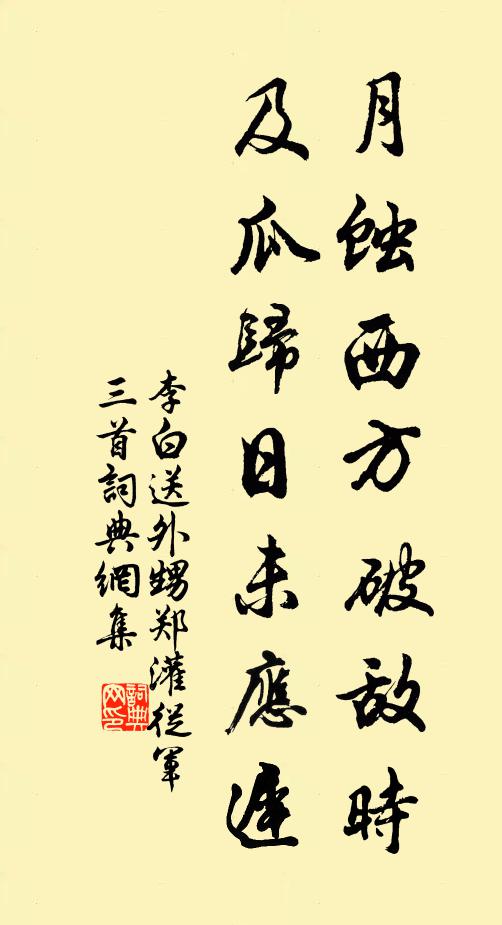 月蚀西方破敌時
及瓜歸日未應遲
李白送外甥郑灌從軍
三首詞典網集
詞典
网印